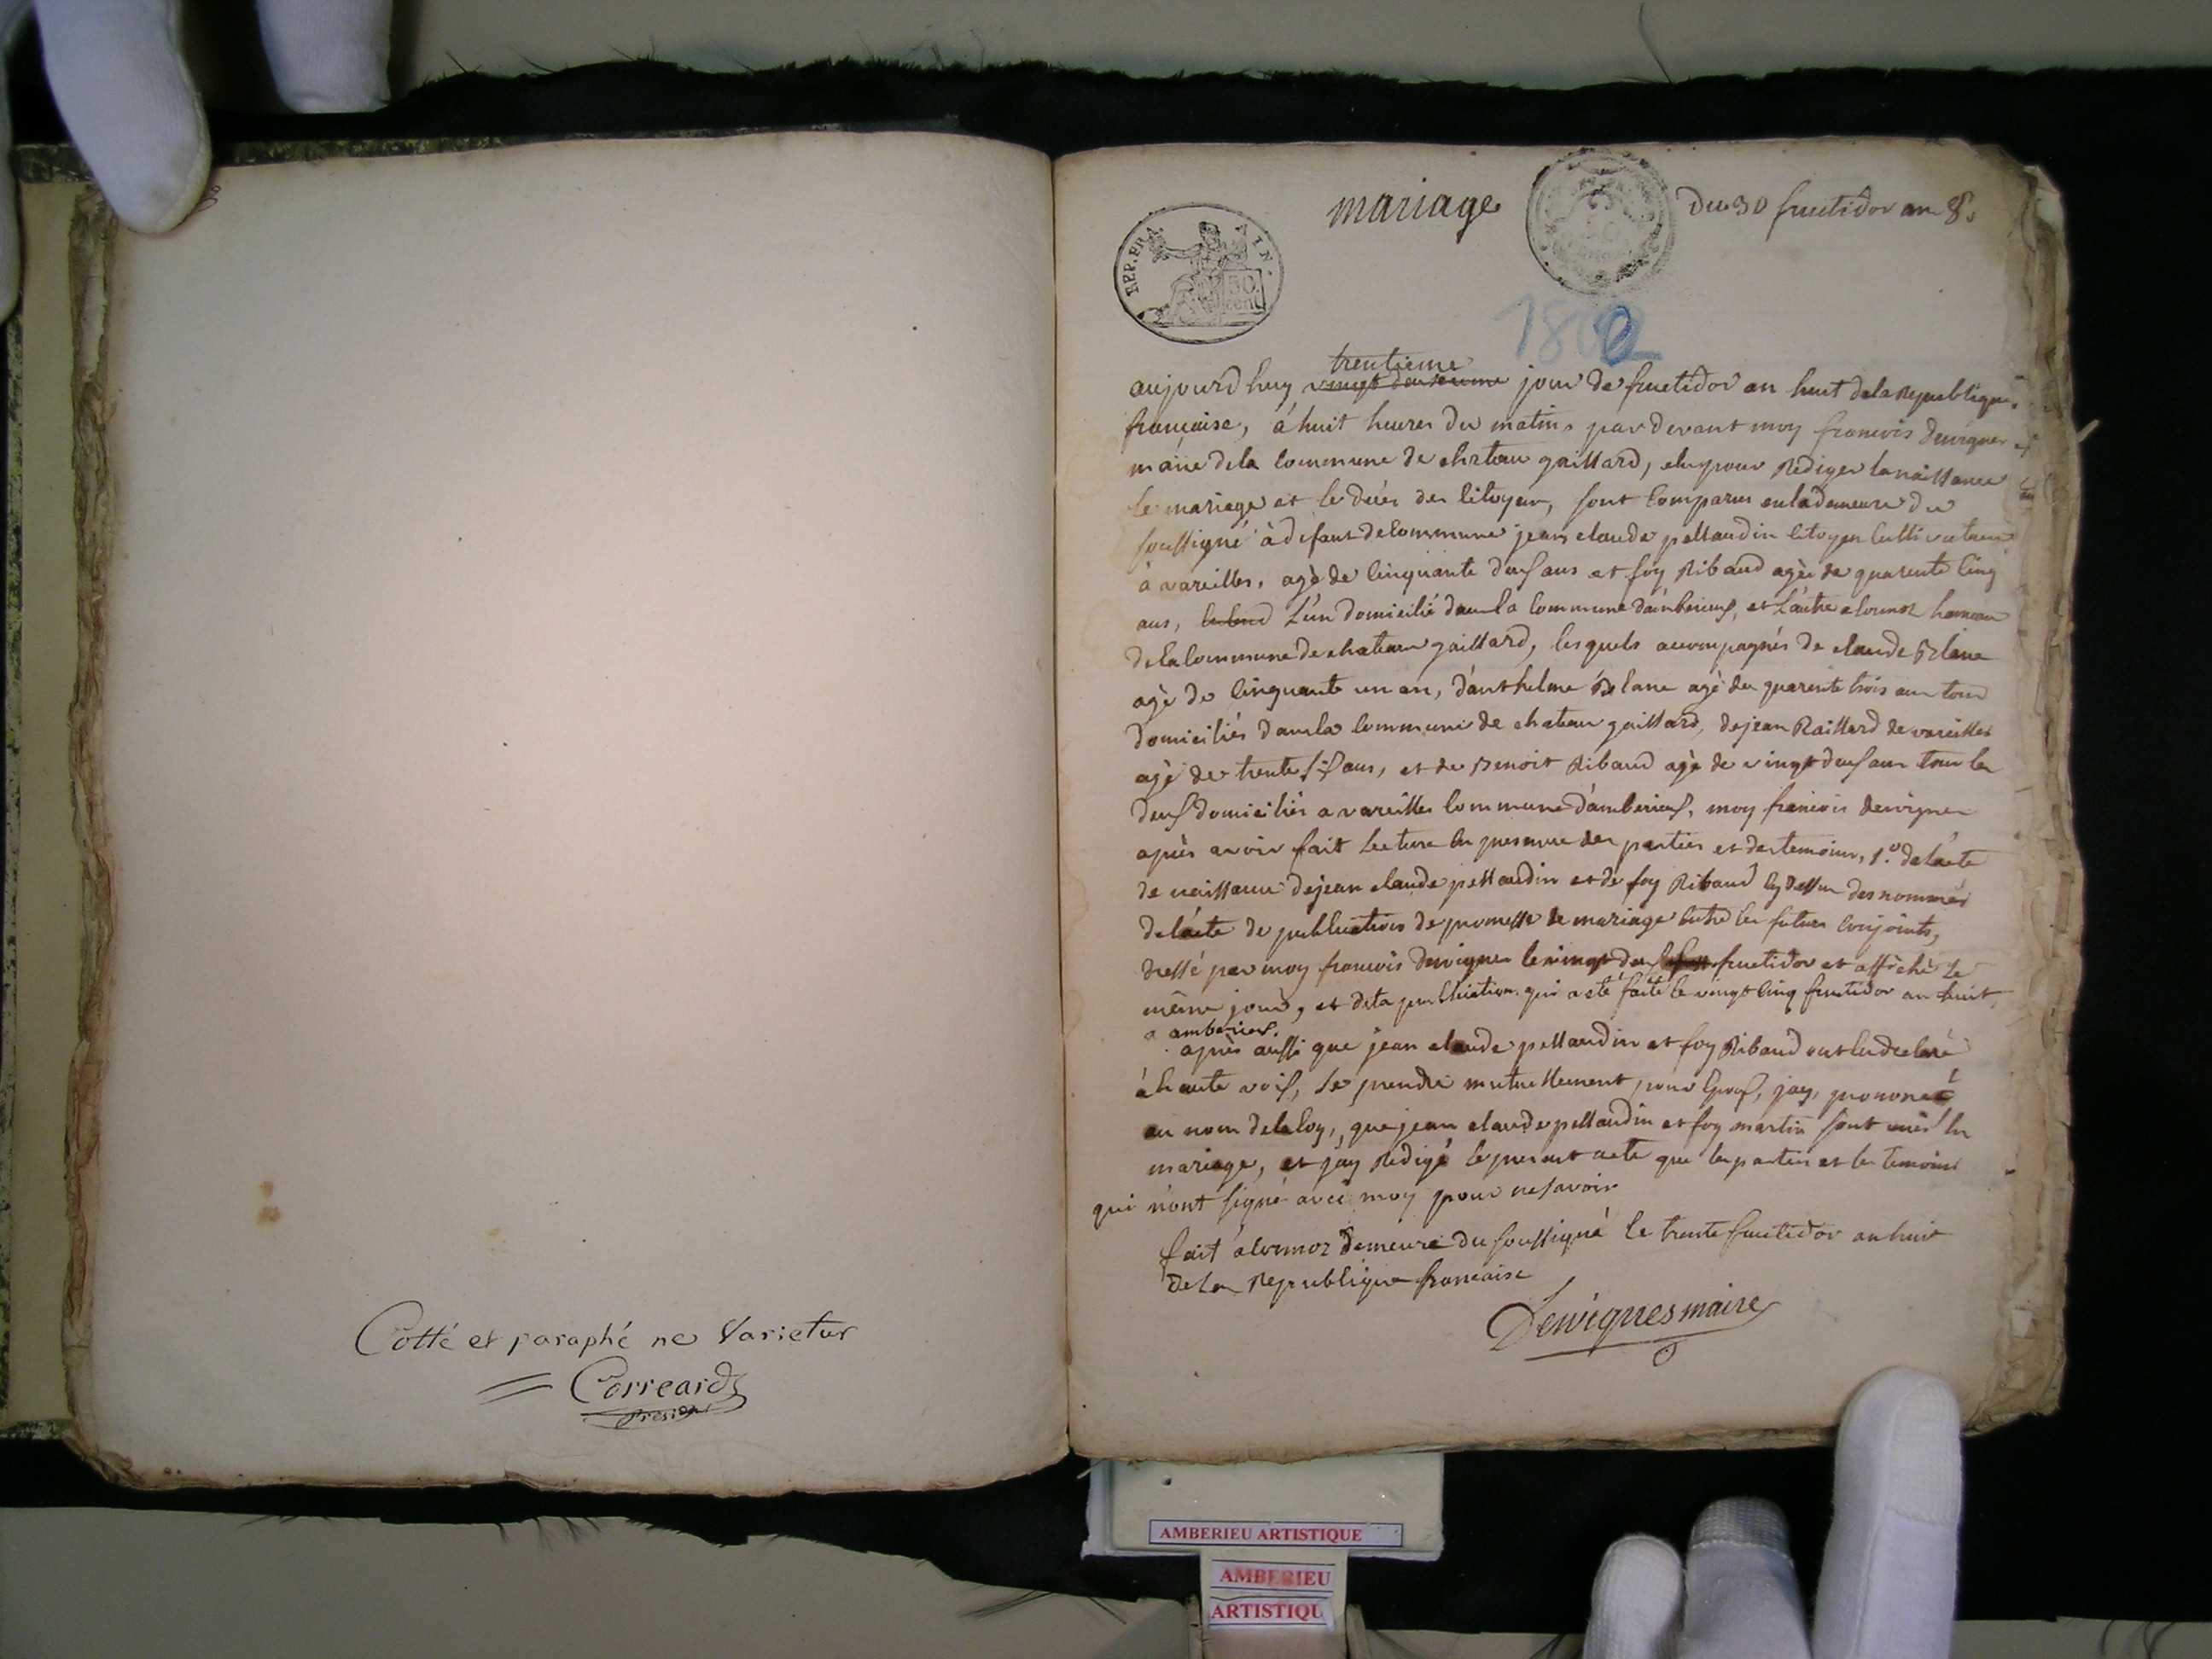 Cotté et paraphé ne Varietur
Correard
Présidt
mariage Du 30 fructidor an 8.
REP. FRA.
50
cent
1802
trentieme
aujourd huy vingt deuxieme jour de fructidor an huit dela Republique
francaise, à huit heures du matin par devant moy francois Dervignes
maire dela Commune de chateau gaillard, elu pour Rediger la naissance
le mariage et le décés des Citoyens, sont Comparus en la demeure du
soussigné à defaut de Commune jean claude pellaudin Citoyen Cultivateur
à vareilles, agé de Cinquante deux ans et foy Ribaud agée de quarente Cinq
ans, L'un domicilié dans la Commune d'amberieux, et L'autre a Cormoz hameau
dela Commune de chateau gaillard, lesquels accompagnés de claude Blanc
agé de Cinquante un an, d'anthelme Blanc agé de quarente trois ans tous
domiciliés dans la Commune de chateau gaillard, de jean Raillard de vareilles
agé de trente six ans, et de Benoit Ribaud agé de vingt deux ans tous les
deux domiciliés a vareilles Commune d'amberieux, moy francois dervignes
après avoir fait lecture en presence des parties et des temoins, 1.° de l'acte
de naissance de jean claude pellaudin et de foy Ribaud Cy dessus desnommés
de l'acte de publication de promesse de mariage Entre les futurs Conjoints,
dressé par moy francois Dervignes le vingt deux fructidor et affiché le
même jour, et de la publication qui a eté faite le vingt Cinq fructidor an huit
a amberieux.
après aussi que jean claude pellaudin et foy Ribaud ont Eu declaré
à haute voix, se prendre mutuellement pour Epoux, j'ay, prononcé
au nom de la loy, que jean claude pellaudin et foy martin sont unis En
mariage, et j'ay Redigé le present acte que les parties et les temoins
qui n'ont signé avec moy pour ne savoir
fait a Cormoz demeure du soussigné le trente fructidor an huit
de La Republique francaise
Dervignes maire
AMBERIEU ARTISTIQUE
AMBERIEU
ARTISTIQU